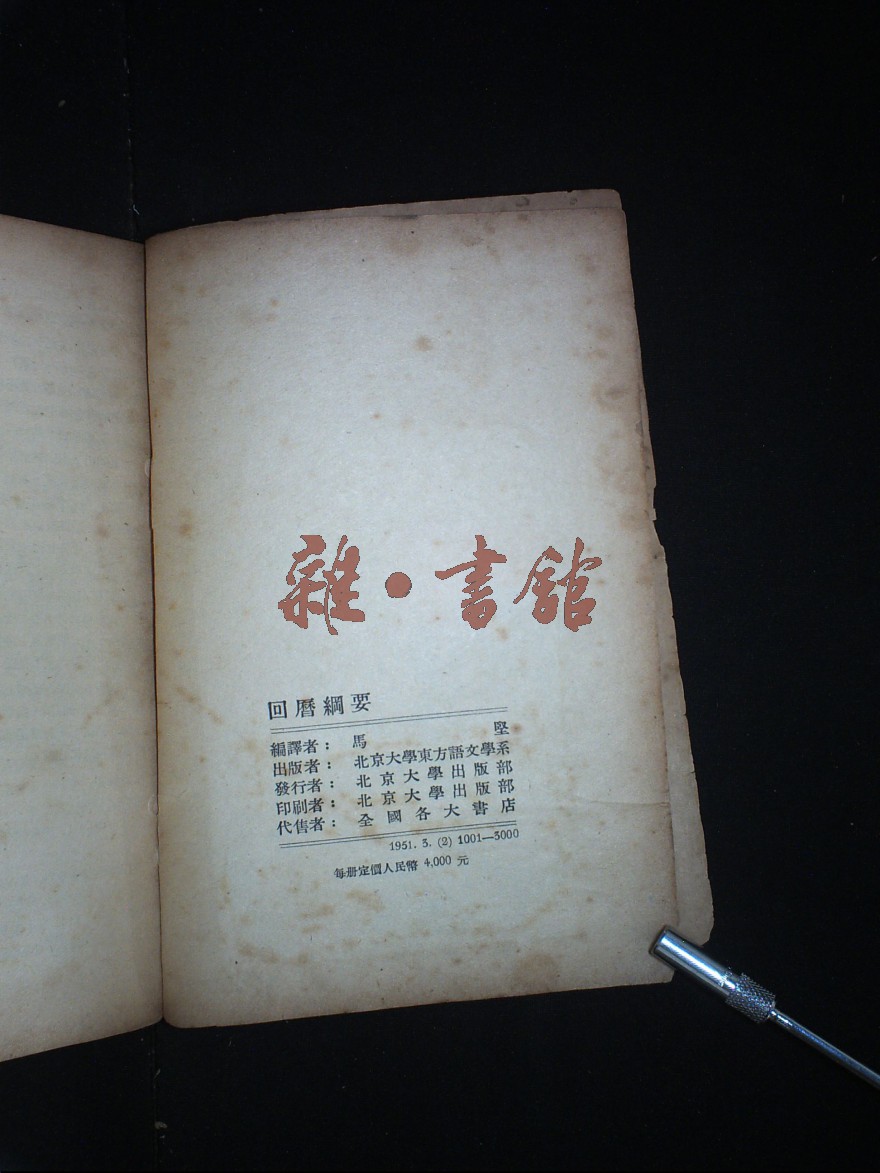 雜·書舘
回曆綱要
編譯者： 馬 堅
出版者： 北京大學東方語文學系
發行者： 北京大學出版部
印刷者： 北京大學出版部
代售者： 全國各大書店
1951. 3. (2) 1001—3000
每册定價人民幣 4,000 元